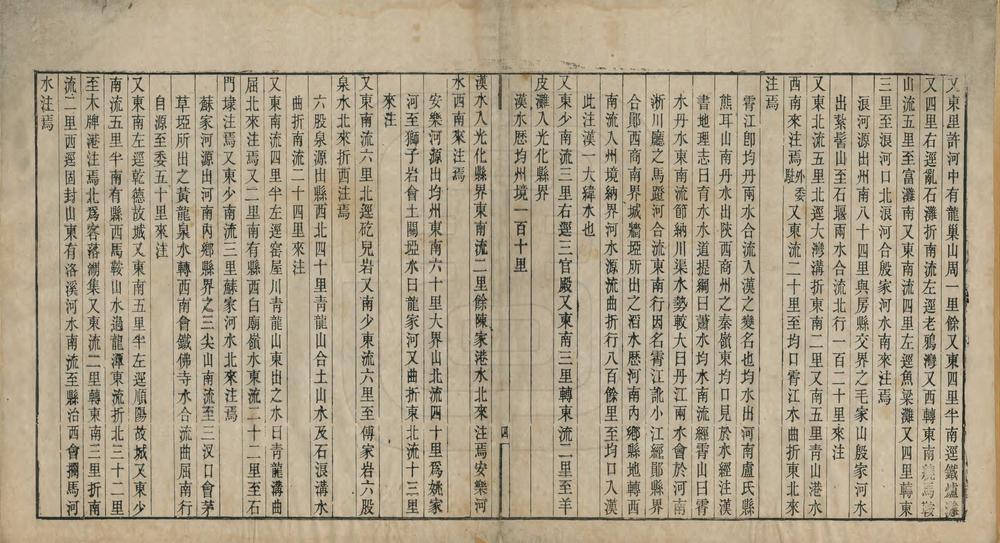 又東里許河中有龍巢山周一里餘又東四里半南逕鐵爐灘
又四里右逕亂石灘折南流左逕老鴉灣又西轉東南繞馬鞍
山流五里至富灘南又東南流四里左逕魚梁灘又四里轉東
三里至浪河口北浪河合殷家河水南來注焉
浪河源出州南八十四里與房縣交界之毛家山殷家河水
出蔡髻山至石堰兩水合流北行一百二十里來注
又東北流五里北逕大灣溝折東南二里又南五里青山港水
西南來注焉外委駐又東流二十里至均口霄江水曲折東北來
注焉
霄江卽均丹兩水合流入漢之變名也均水出河南盧氏縣
熊耳山南丹水出陝西商州之秦嶺東均口見於水經注漢
書地理志曰育水水道提綱曰蕭水均水南流經霄山曰霄
水丹水東南流節納川渠水勢較大曰丹江兩水會於河南
淅川廳之馬蹬河合流東南行因名霄江訛小江經鄖縣界
合鄖西商南界城牆埡所出之滔水歷河南內鄉縣地轉西
南流入州境納界河水源流曲折行八百餘里至均口入漢
此注漢一大緯水也
又東少南流三里右逕三官殿又東南三里轉東流二里至羊
皮灘入光化縣界
漢水歷均州境一百十里
漢水入光化縣界東南流二里餘陳家港水北來注焉安樂河
水西南來注焉
安樂河源出均州東南六十里大界山北流四十里爲姚家
河至獅子岩會土關埡水曰龍家河又曲折東北流十三里
來注
又東南流六里北逕矻兒岩又南少東流六里至傅家岩六股
泉水北來折西注焉
六股泉源出縣西北四十里青龍山合土山水及石滾溝水
曲折南流二十四里來注
又東南流四里半左逕窑屋川青龍山東出之水曰青龍溝曲
屈北來注焉又二里南有縣西白廟嶺水東流二十二里至石
門埭注焉又東少南流三里蘇家河水北來注焉
蘇家河源出河南內鄉縣界之三尖山南流至三汊口會茅
草埡所出之黃龍泉水轉西南會鐵佛寺水合流曲屈南行
自源至委五十里來注
又東南左逕乾德故城又東南五里半左逕順陽故城又東少
南流五里半南有縣西馬鞍山水過龍潭東流折北三十二里
至木牌港注焉北爲客落潮集又東流二里轉東南三里折南
流二里西逕固封山東有洛溪河水南流至縣治西會攔馬河
水注焉
四